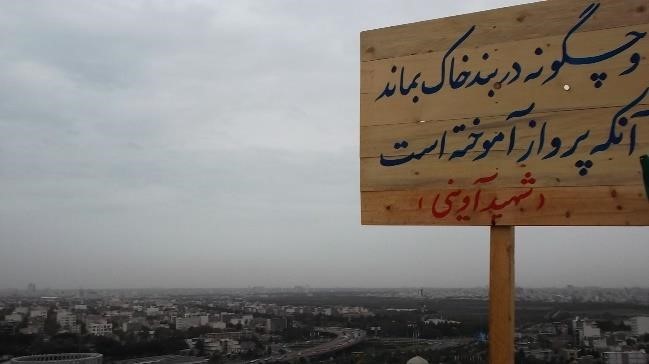 و چگونه در بند خاک بماند
آنکه پرواز آموخته است
(شهید آوینی)